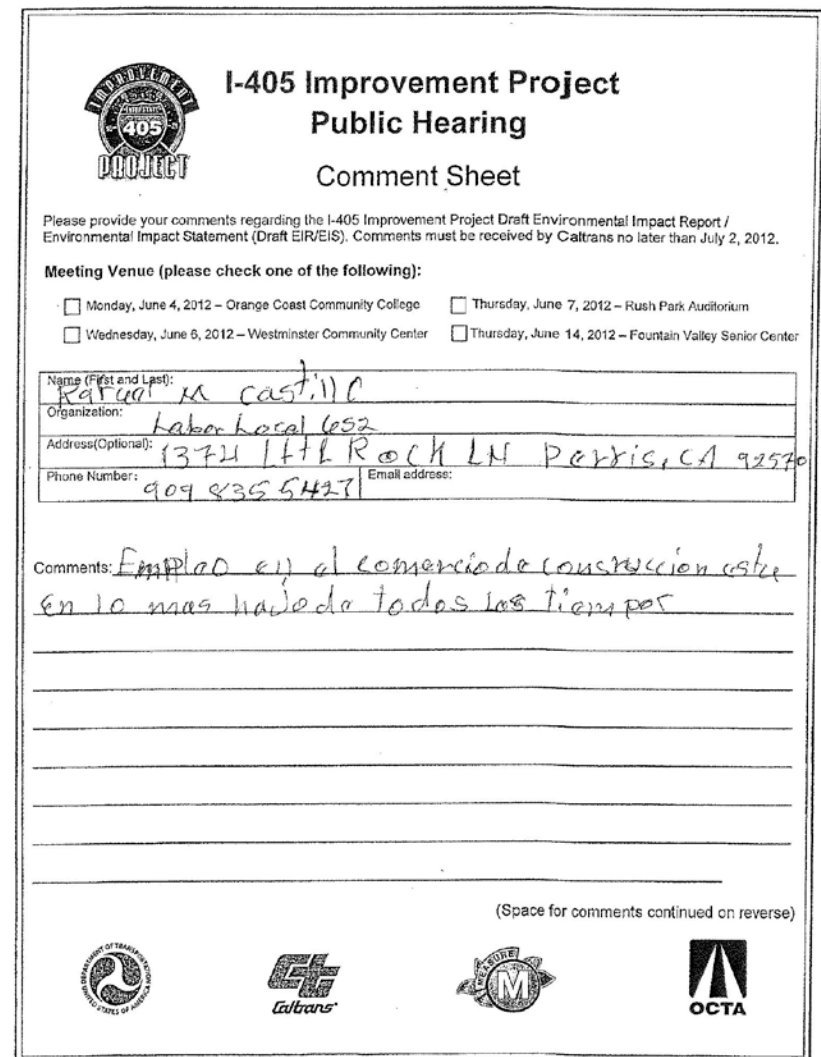 IMPROVEMENT
INTERSTATE
405
PROJECT
I-405 Improvement Project
Public Hearing
Comment Sheet
Please provide your comments regarding the I-405 Improvement Project Draft Environmental Impact Report /
Environmental Impact Statement (Draft EIR/EIS). Comments must be received by Caltrans no later than July 2, 2012.
Meeting Venue (please check one of the following):
Monday, June 4, 2012 – Orange Coast Community College Thursday, June 7, 2012 – Rush Park Auditorium
Wednesday, June 6, 2012 – Westminster Community Center Thursday, June 14, 2012 – Fountain Valley Senior Center
Name (First and Last):
M Castillo
Organization:
Labor Local 652
Address(Optional): Rock LN Perris, CA 92570
Phone Number: 909 835 5427 Email address:
Comments: Emplao en el comercio de construccion este
En lo mas bajo de todos los tiempos
(Space for comments continued on reverse)
DEPARTMENT OF TRANSPORTATION
UNITED STATES OF AMERICA
Caltrans
MEASURE
M
OCTA